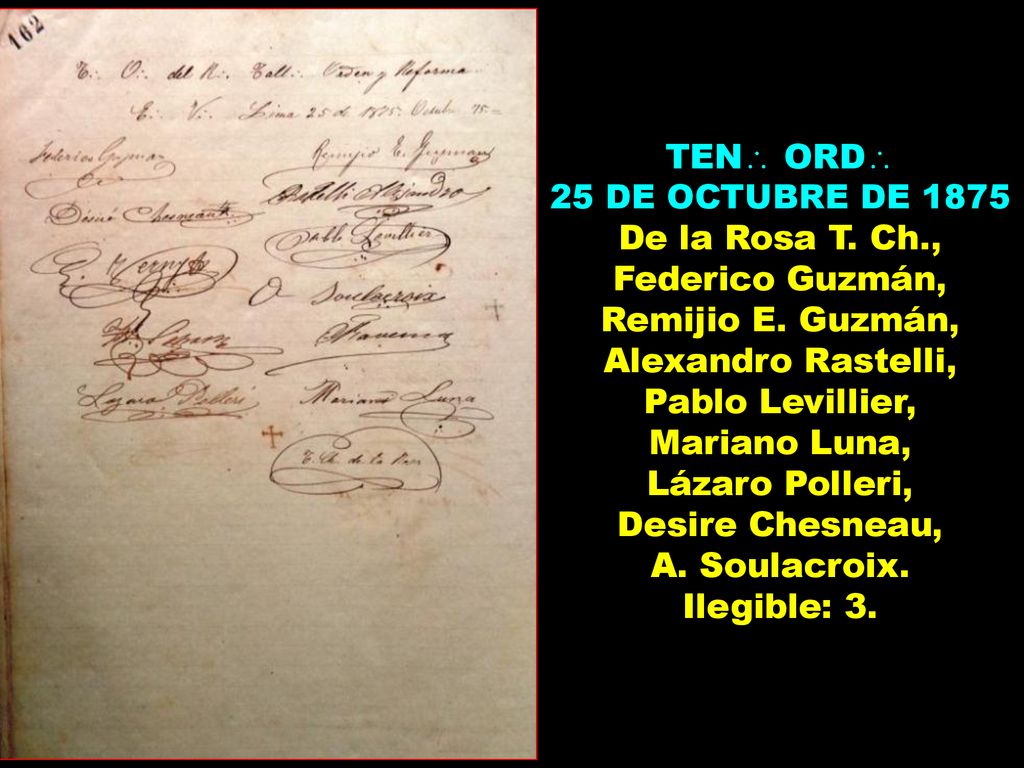 162
T∴ O∴ del R∴ Tall∴ Orden y Reforma
E∴ V∴ Lima 25 de 1875 Octubre 75
Federico Guzman
Remijio E. Guzman
Rastelli Alejandro
Desiré Chesneau
Pablo Levillier
Soulacroix
Lazaro Polleri
Mariano Luna
T. Ch. de la Rosa
TEN∴ ORD∴
25 DE OCTUBRE DE 1875
De la Rosa T. Ch.,
Federico Guzmán,
Remijio E. Guzmán,
Alexandro Rastelli,
Pablo Levillier,
Mariano Luna,
Lázaro Polleri,
Desire Chesneau,
A. Soulacroix.
Ilegible: 3.